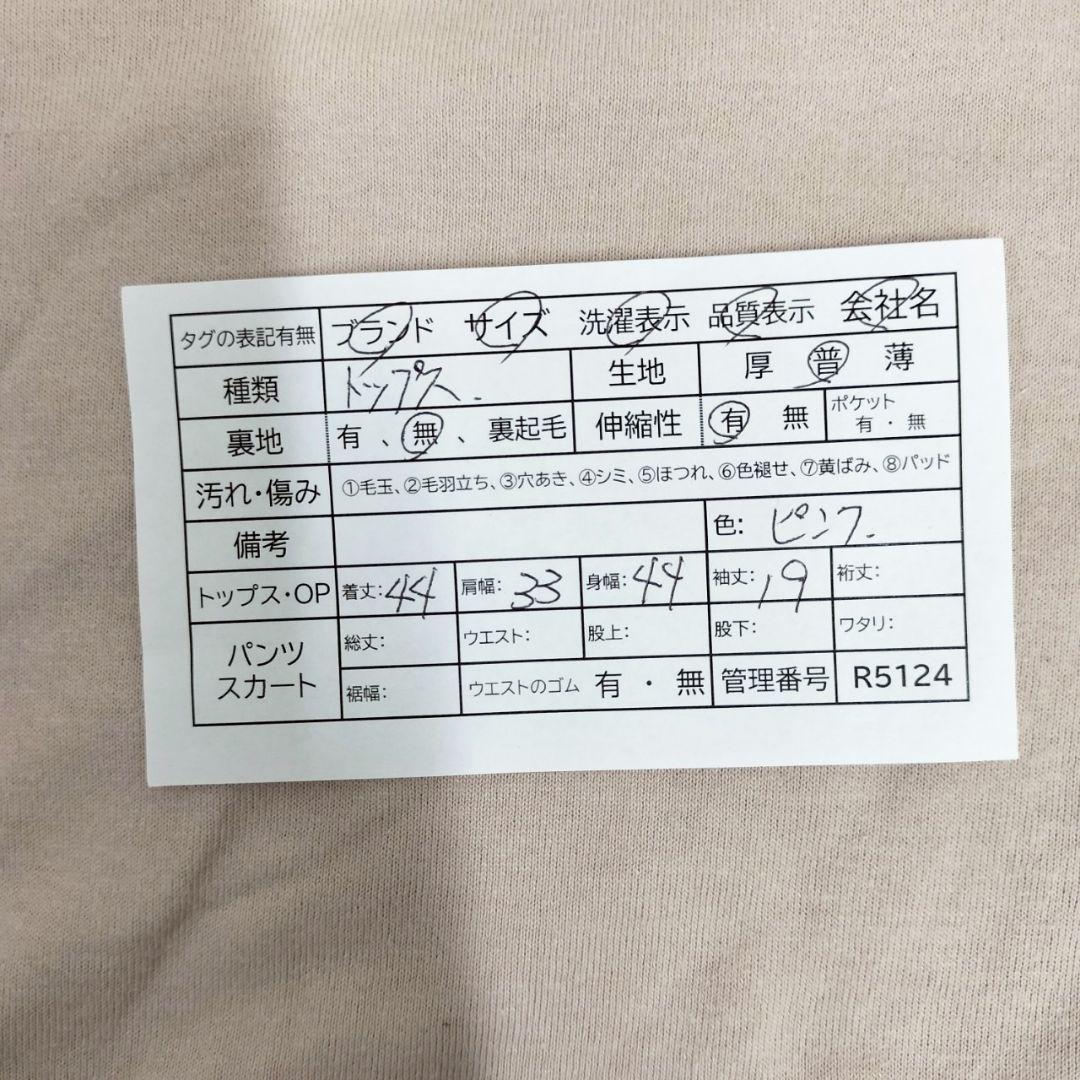 タグの表記有無 ブランド サイズ 洗濯表示 品質表示 会社名
種類 トップス. 生地 厚 普 薄
裏地 有 、 無 、 裏起毛 伸縮性 有 無 ポケット 有 ・ 無
汚れ・傷み ①毛玉、②毛羽立ち、③穴あき、④シミ、⑤ほつれ、⑥色褪せ、⑦黄ばみ、⑧パッド
備考 色: ピンク.
トップス・OP 着丈:44 肩幅:33 身幅:44 袖丈:19 裄丈:
パンツ スカート 総丈: ウエスト: 股上: 股下: ワタリ:
裾幅: ウエストのゴム 有 ・ 無 管理番号 R5124